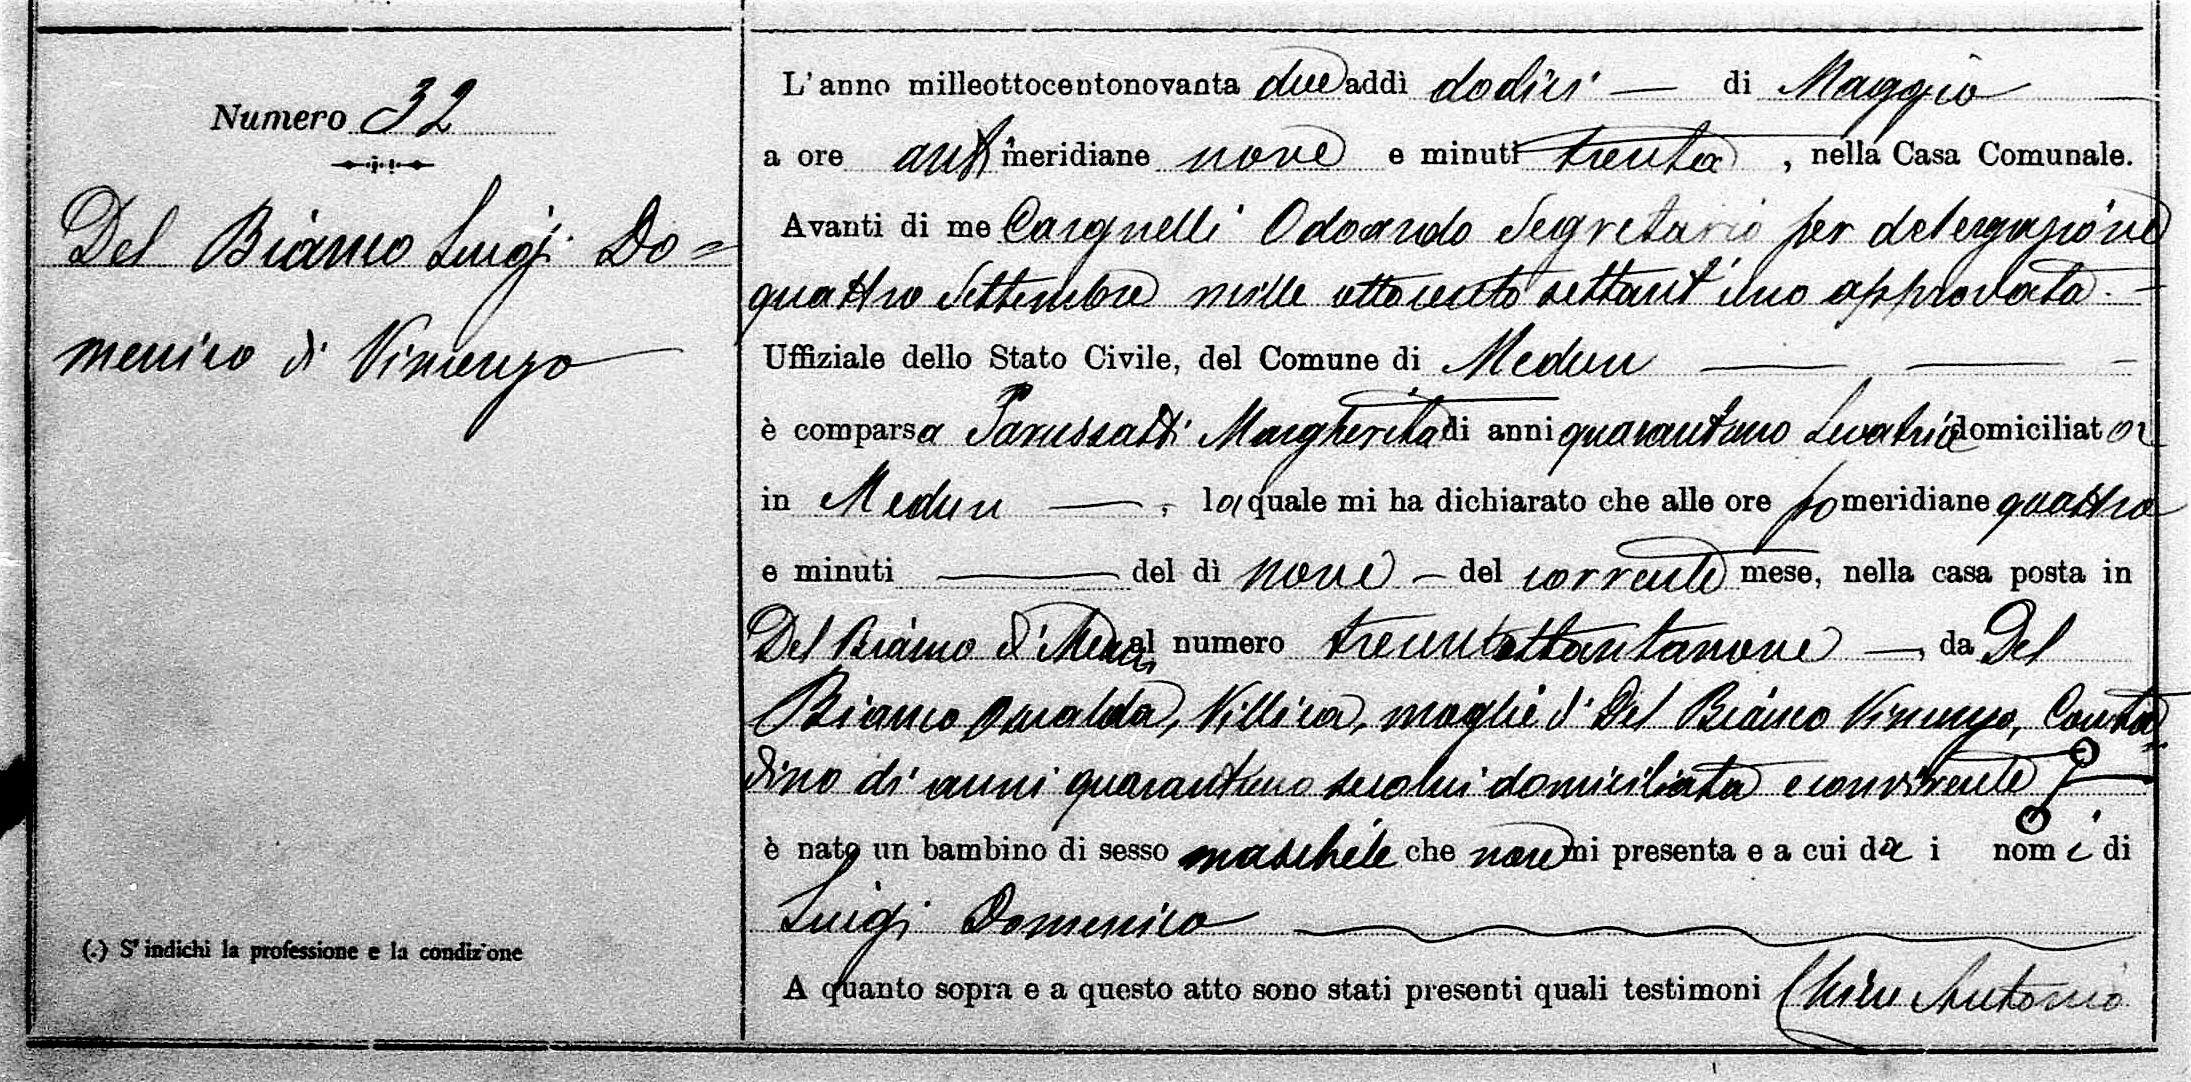 Numero 32
Del Bianco Luigi Do=
menico di Vincenzo
(.) S'indichi la professione e la condizione
L'anno milleottocentonovanta due addì dodici — di Maggio —
a ore anti meridiane nove e minuti trenta, nella Casa Comunale.
Avanti di me Cargnelli Odoardo Segretario per delegazione
quattro Settembre mille ottocento settant'uno approvata —
Uffiziale dello Stato Civile, del Comune di Medun — — —
è comparsa Parussatti Margherita di anni quarantuno Levatrice domiciliata
in Medun —, la quale mi ha dichiarato che alle ore po meridiane quattro
e minuti — del dì nove — del corrente mese, nella casa posta in
Del Bianco di al numero trecentottantanove —, da Del
Bianco Osvalda, Villica, moglie di Del Bianco Vincenzo, Conta=
dino di anni quarantuno seco lui domiciliata e convivente
è nato un bambino di sesso maschile che non mi presenta e a cui da i nomi di
Luigi Domenico
A quanto sopra e a questo atto sono stati presenti quali testimoni Antonio